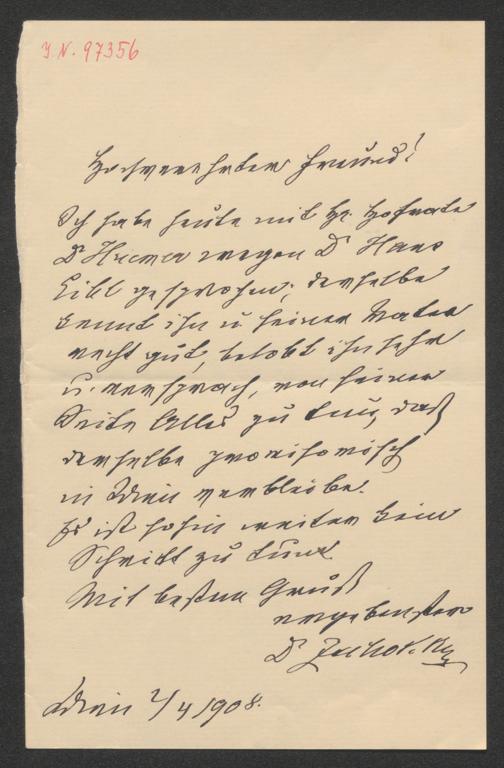 I.N. 97356
Hochverehrter Freund!
Ich habe heute mit H. Hofrate
Dr Huemer wegen Dr Hans
Eibl gesprochen; derselbe
kennt ihn u seinen Vater
recht gut, belobt ihn sehr
u. versprach, von seiner
Seite Alles zu tun, daß
derselbe provisorisch
in Wien verbleibe.
Es ist sohin weiter kein
Schritt zu tun.
Mit besten Gruß
ergebenster
Dr
Wien 2/4 1908.